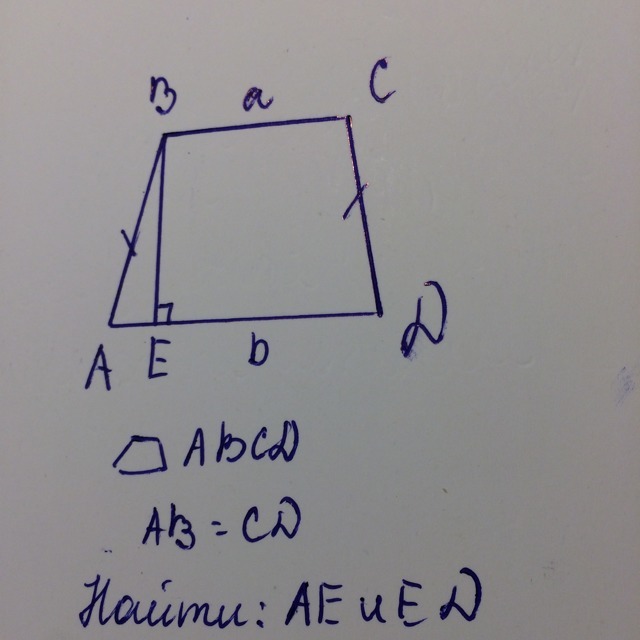 B a C
A E b D
ABCD
AB = CD
Найти: AE и ED